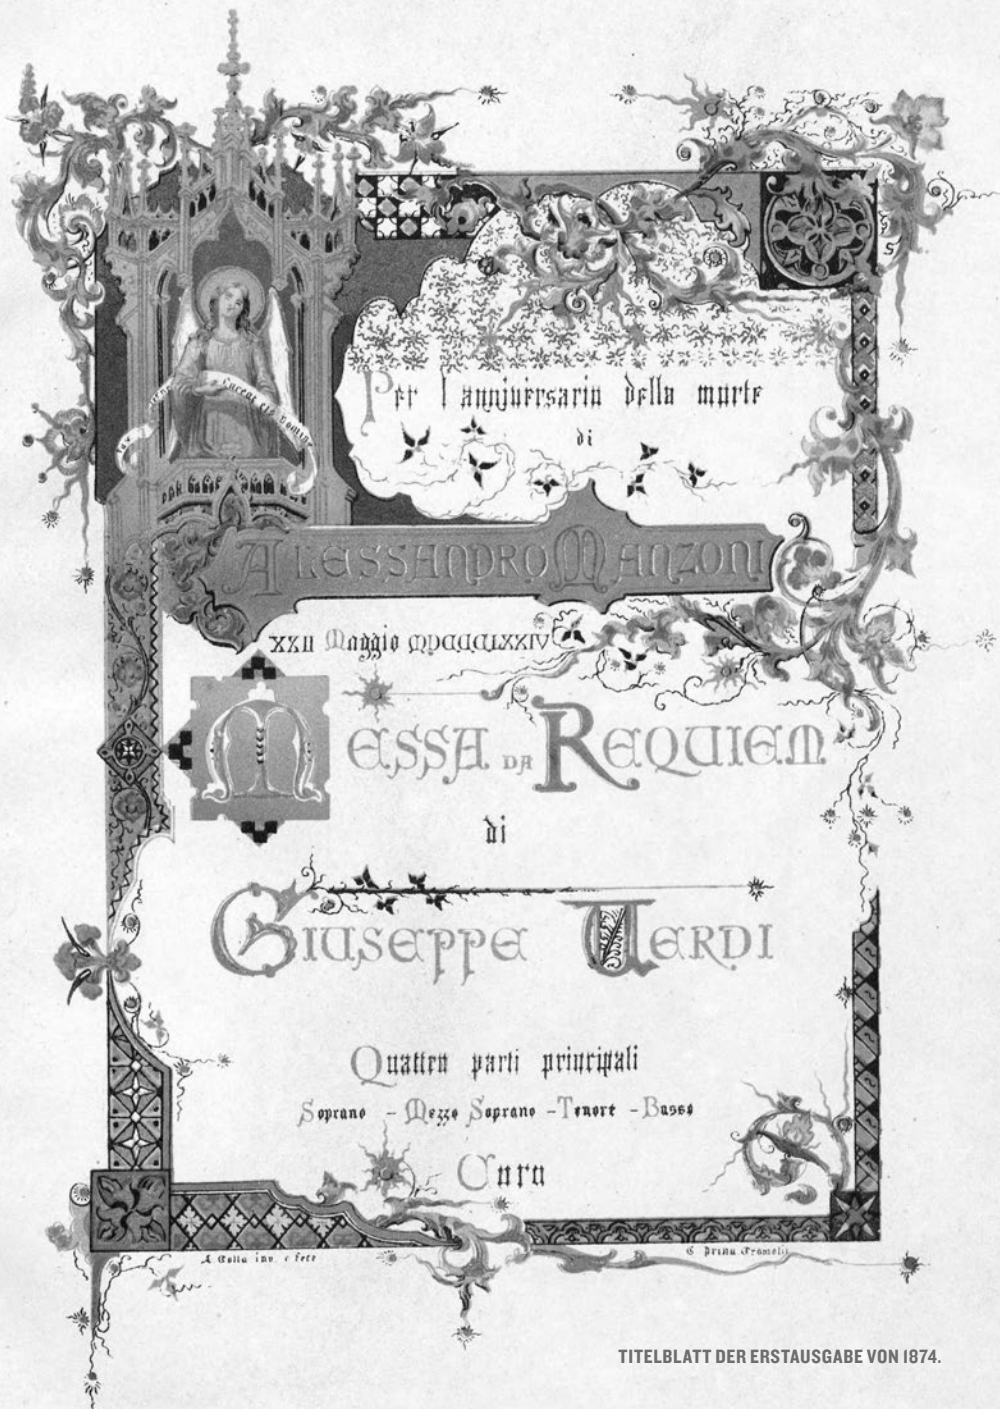 luceat eis Domine
Per l anniversario della morte
di
ALESSANDRO MANZONI
XXII Maggio MDCCCLXXIV
MESSA DA REQUIEM
di
GIUSEPPE VERDI
Quattro parti principali
Soprano - Mezzo Soprano - Tenore - Basso
Coro
inv. e fece
TITELBLATT DER ERSTAUSGABE VON 1874.